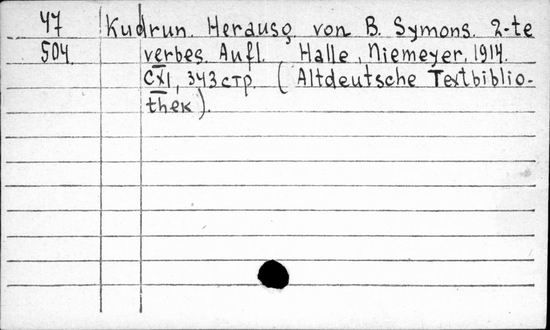 47 Kudrun. Herausg. von B. Symons. 2-te
504 verbes. Aufl. Halle, Niemeyer, 1914.
CXI, 343 стр. (Altdeutsche Textbiblio-
thek).